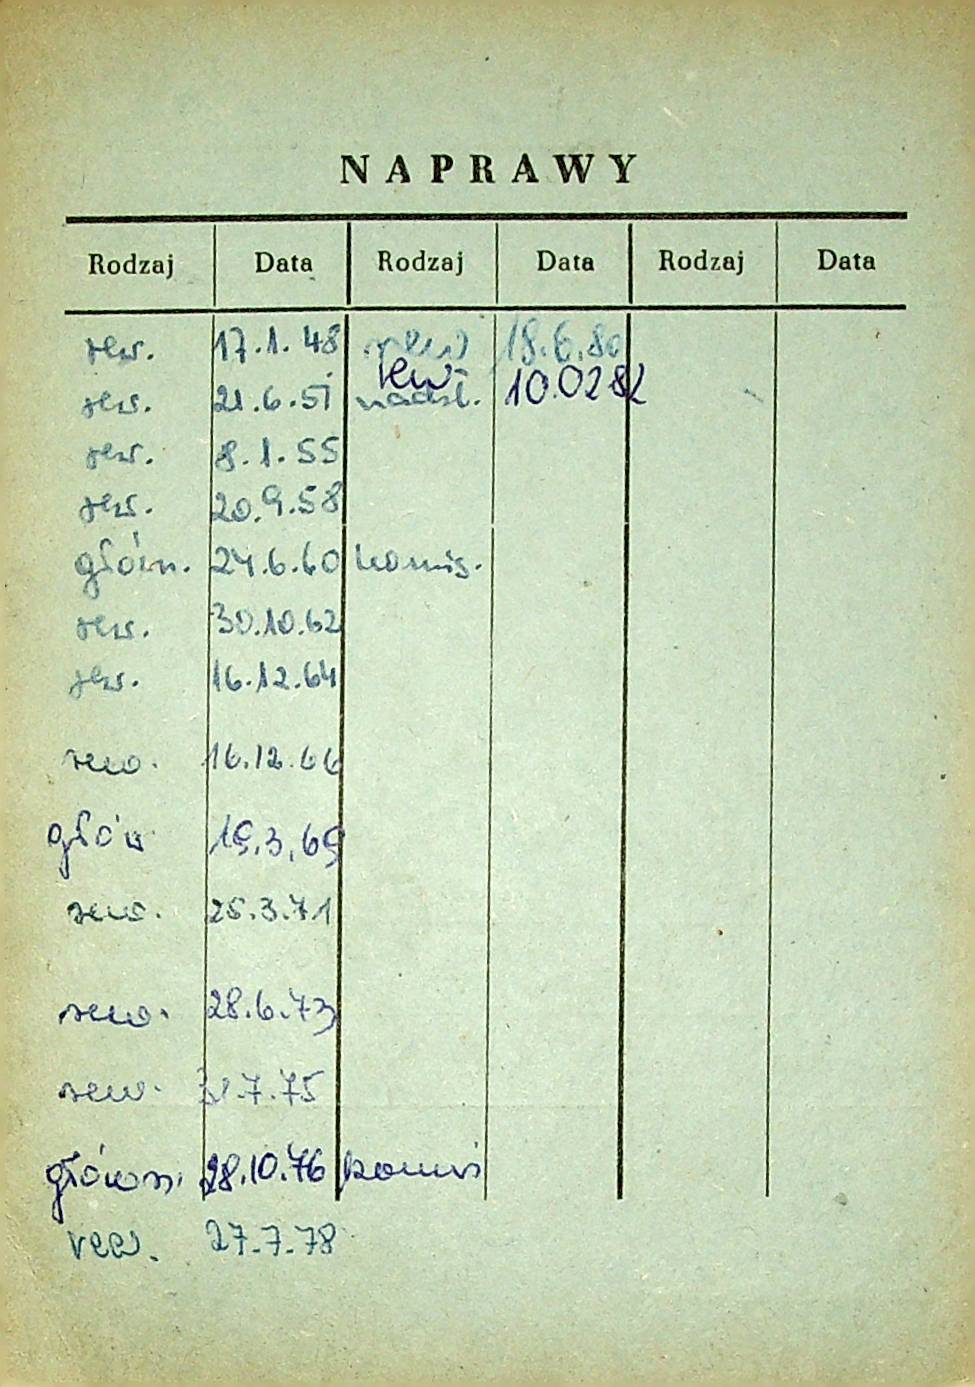 NAPRAWY
Rodzaj Data Rodzaj Data Rodzaj Data
rew. 17.1.48 rew 18.6.80
rew. 21.6.51 nadst. rew 10.02 82
rew. 8.1.55
rew. 20.9.58
główn. 24.6.60 komis.
rew. 30.10.62
rew. 16.12.64
rew. 16.12.66
głów 19.3.69
rew. 25.3.71
rew. 28.6.73
rew. 31.7.75
główn. 28.10.76 komis
rew. 27.7.78